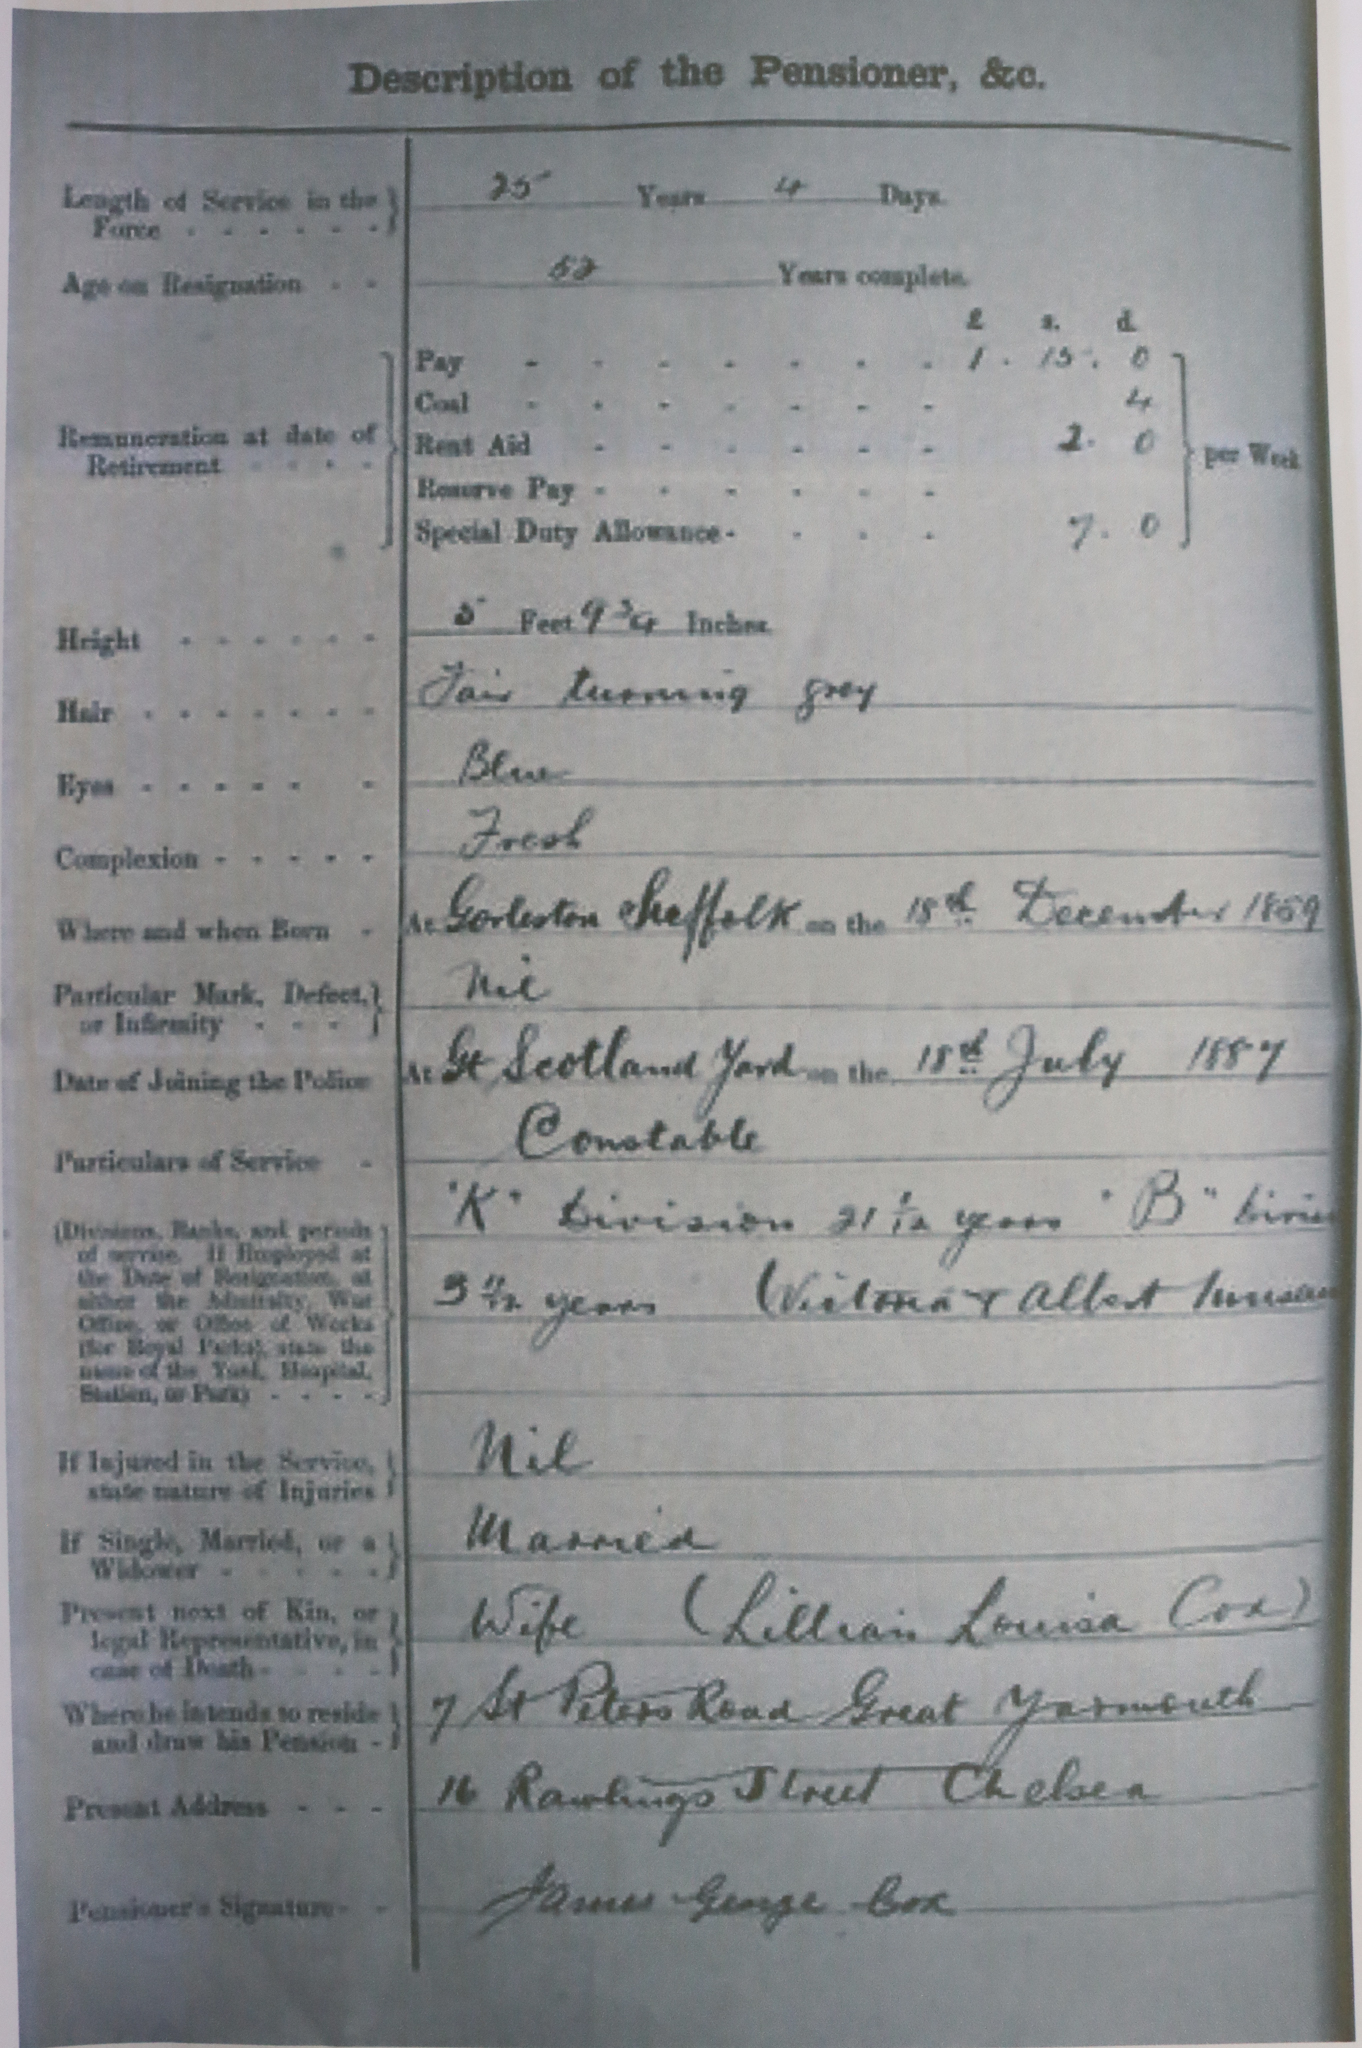 Description of the Pensioner, &c.
Length of Service in the Force - - - - - - } 25 Years 4 Days.
Age on Resignation - - 52 Years complete.
£ s. d.
Remuneration at date of Retirement - - - - } Pay - - - - - - - 1 . 15 . 0
Coal - - - - - - - 4
Rent Aid - - - - - - 2 . 0 } per Week
Reserve Pay - - - - - -
Special Duty Allowance - - - - 7 . 0
Height - - - - - - 5 Feet 9 3/4 Inches.
Hair - - - - - - - Fair turning grey
Eyes - - - - - - Blue
Complexion - - - - - Fresh
Where and when Born - At Gorleston Suffolk on the 18th December 1859
Particular Mark, Defect, or Infirmity - - - } Nil
Date of Joining the Police At Gt Scotland Yard on the 18th July 1887
Particulars of Service - Constable
(Divisions, Ranks, and periods of service. If Employed at the Date of Resignation, at either the Admiralty, War Office, or Office of Works (for Royal Parks), state the name of the Yard, Hospital, Station, or Park) - - - - }
"K" Division 21 1/12 years "B" Divisi
3 11/12 years (Victoria & Albert Museu
If Injured in the Service, state nature of Injuries } Nil
If Single, Married, or a Widower - - - - - } Married
Present next of Kin, or legal Representative, in case of Death - - - - } Wife (Lillian Louisa Cox)
Where he intends to reside and draw his Pension - } 7 St Peters Road Great Yarmouth
Present Address - - - 16 Rawlings Street Chelsea
Pensioner's Signature - - James George Cox